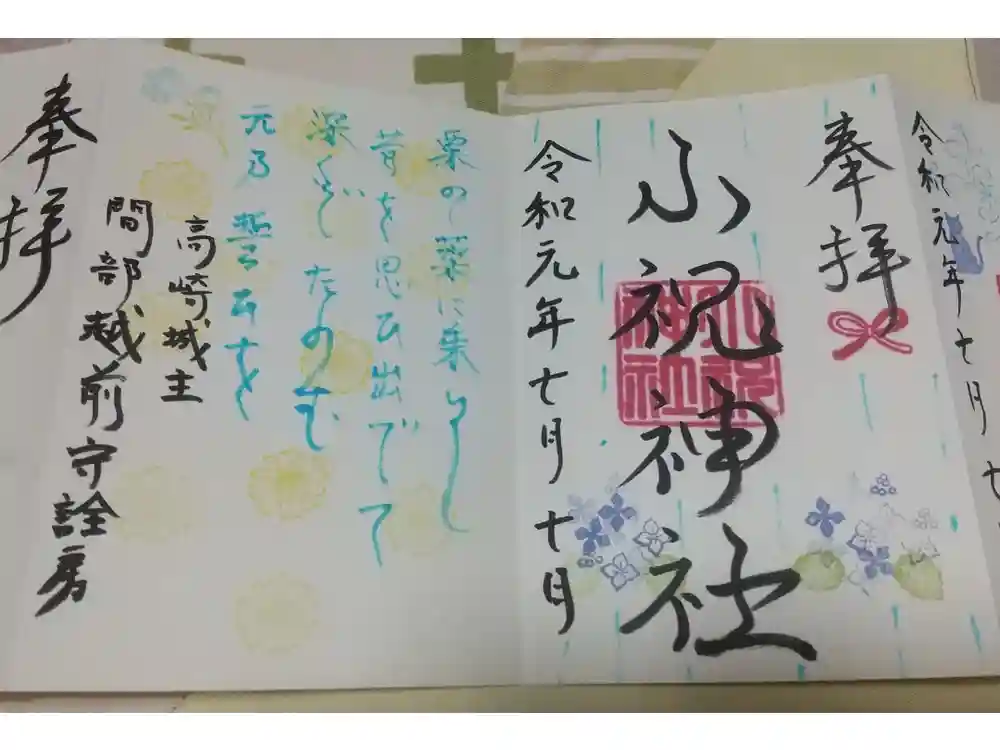 令和元年七月
奉拝
小祝神社
小祝神社
令和元年七月十月
昔を思ひ出でて
深くぞたのむ
元乃誓ひを
高崎城主
間部越前守詮房
奉拝